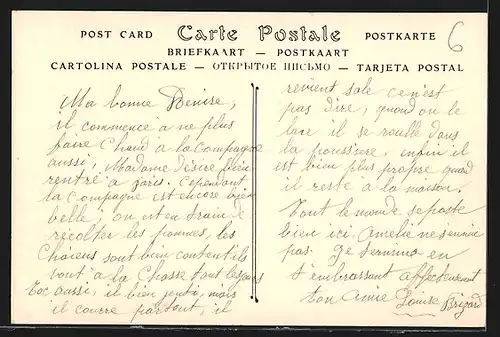 POST CARD Carte Postale POSTKARTE
BRIEFKAART — POSTKAART
CARTOLINA POSTALE — ОТКРЫТОЕ ПИСЬМО — TARJETA POSTAL
6
Ma bonne Denise,
il commence a ne plus
faire Chaud a la Campagne
aussi, Madame Désire bien
rentré a Paris. Cependant
la Campagne est encore bien
belle; on est en train de
récolter les pommes, les
Chiens sont bien contents ils
vont a la Chasse tout les jours
Toc aussi, il est bien gentil, mais
il courre partout, il
revient sale ce n'est
pas dire, quand on le
lave il se roulle dans
la poussiere, enfin il
est bien plus propre quand
il reste a la maison.
Tout le monde se porte
bien ici, Amelie ne s'ennuie
pas. Je termine en
t'embrassant affectueusement
ton Amie Louise Brizard